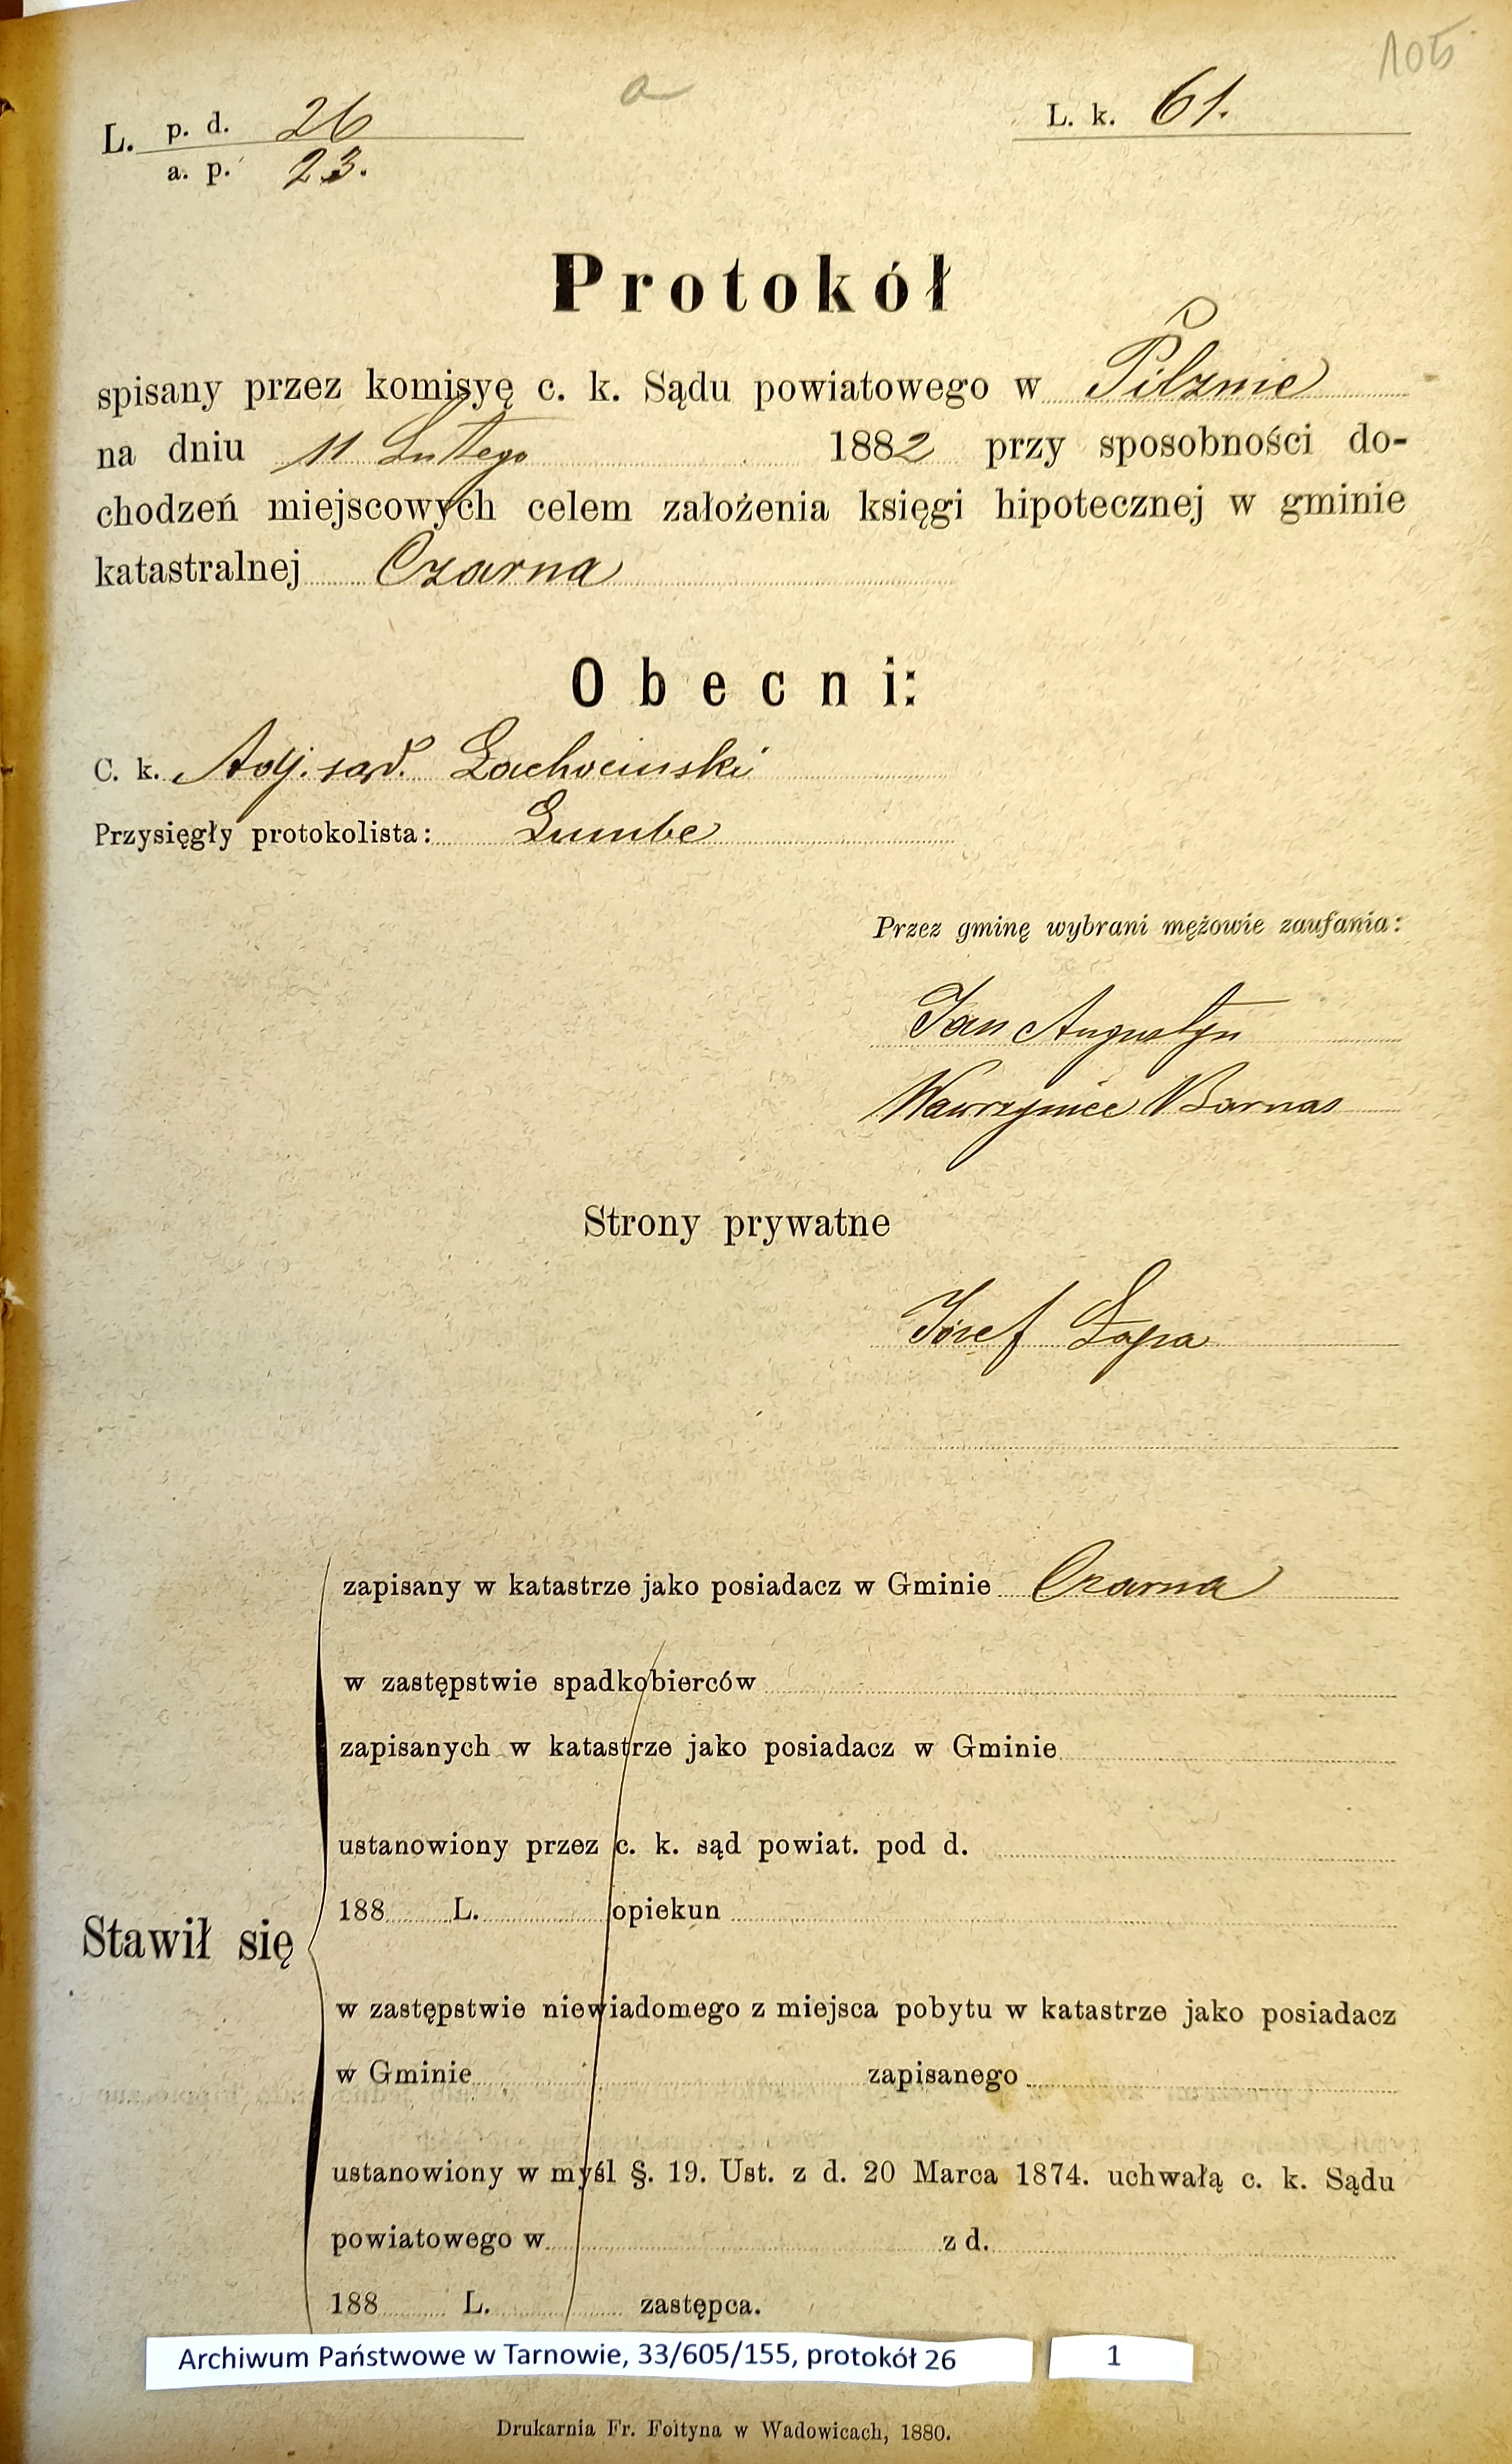 105
a
L. p. d. 26
a. p. 23.
L. k. 61.
Protokół
spisany przez komisyę c. k. Sądu powiatowego w Pilznie
na dniu 11 Lutego 1882 przy sposobności do-
chodzeń miejscowych celem założenia księgi hipotecznej w gminie
katastralnej Czarna
Obecni:
C. k. Adj. sąd. Lachocinski
Przysięgły protokolista: Lumbe
Przez gminę wybrani mężowie zaufania:
Jan Augustyn
Wawrzyniec Barnas
Strony prywatne
Józef Łapa
zapisany w katastrze jako posiadacz w Gminie Czarna
w zastępstwie spadkobierców
zapisanych w katastrze jako posiadacz w Gminie
ustanowiony przez c. k. sąd powiat. pod d.
188 L. opiekun
Stawił się
w zastępstwie niewiadomego z miejsca pobytu w katastrze jako posiadacz
w Gminie zapisanego
ustanowiony w myśl §. 19. Ust. z d. 20 Marca 1874. uchwałą c. k. Sądu
powiatowego w z d.
188 L. zastępca.
Archiwum Państwowe w Tarnowie, 33/605/155, protokół 26 1
Drukarnia Fr. Foltyna w Wadowicach, 1880.